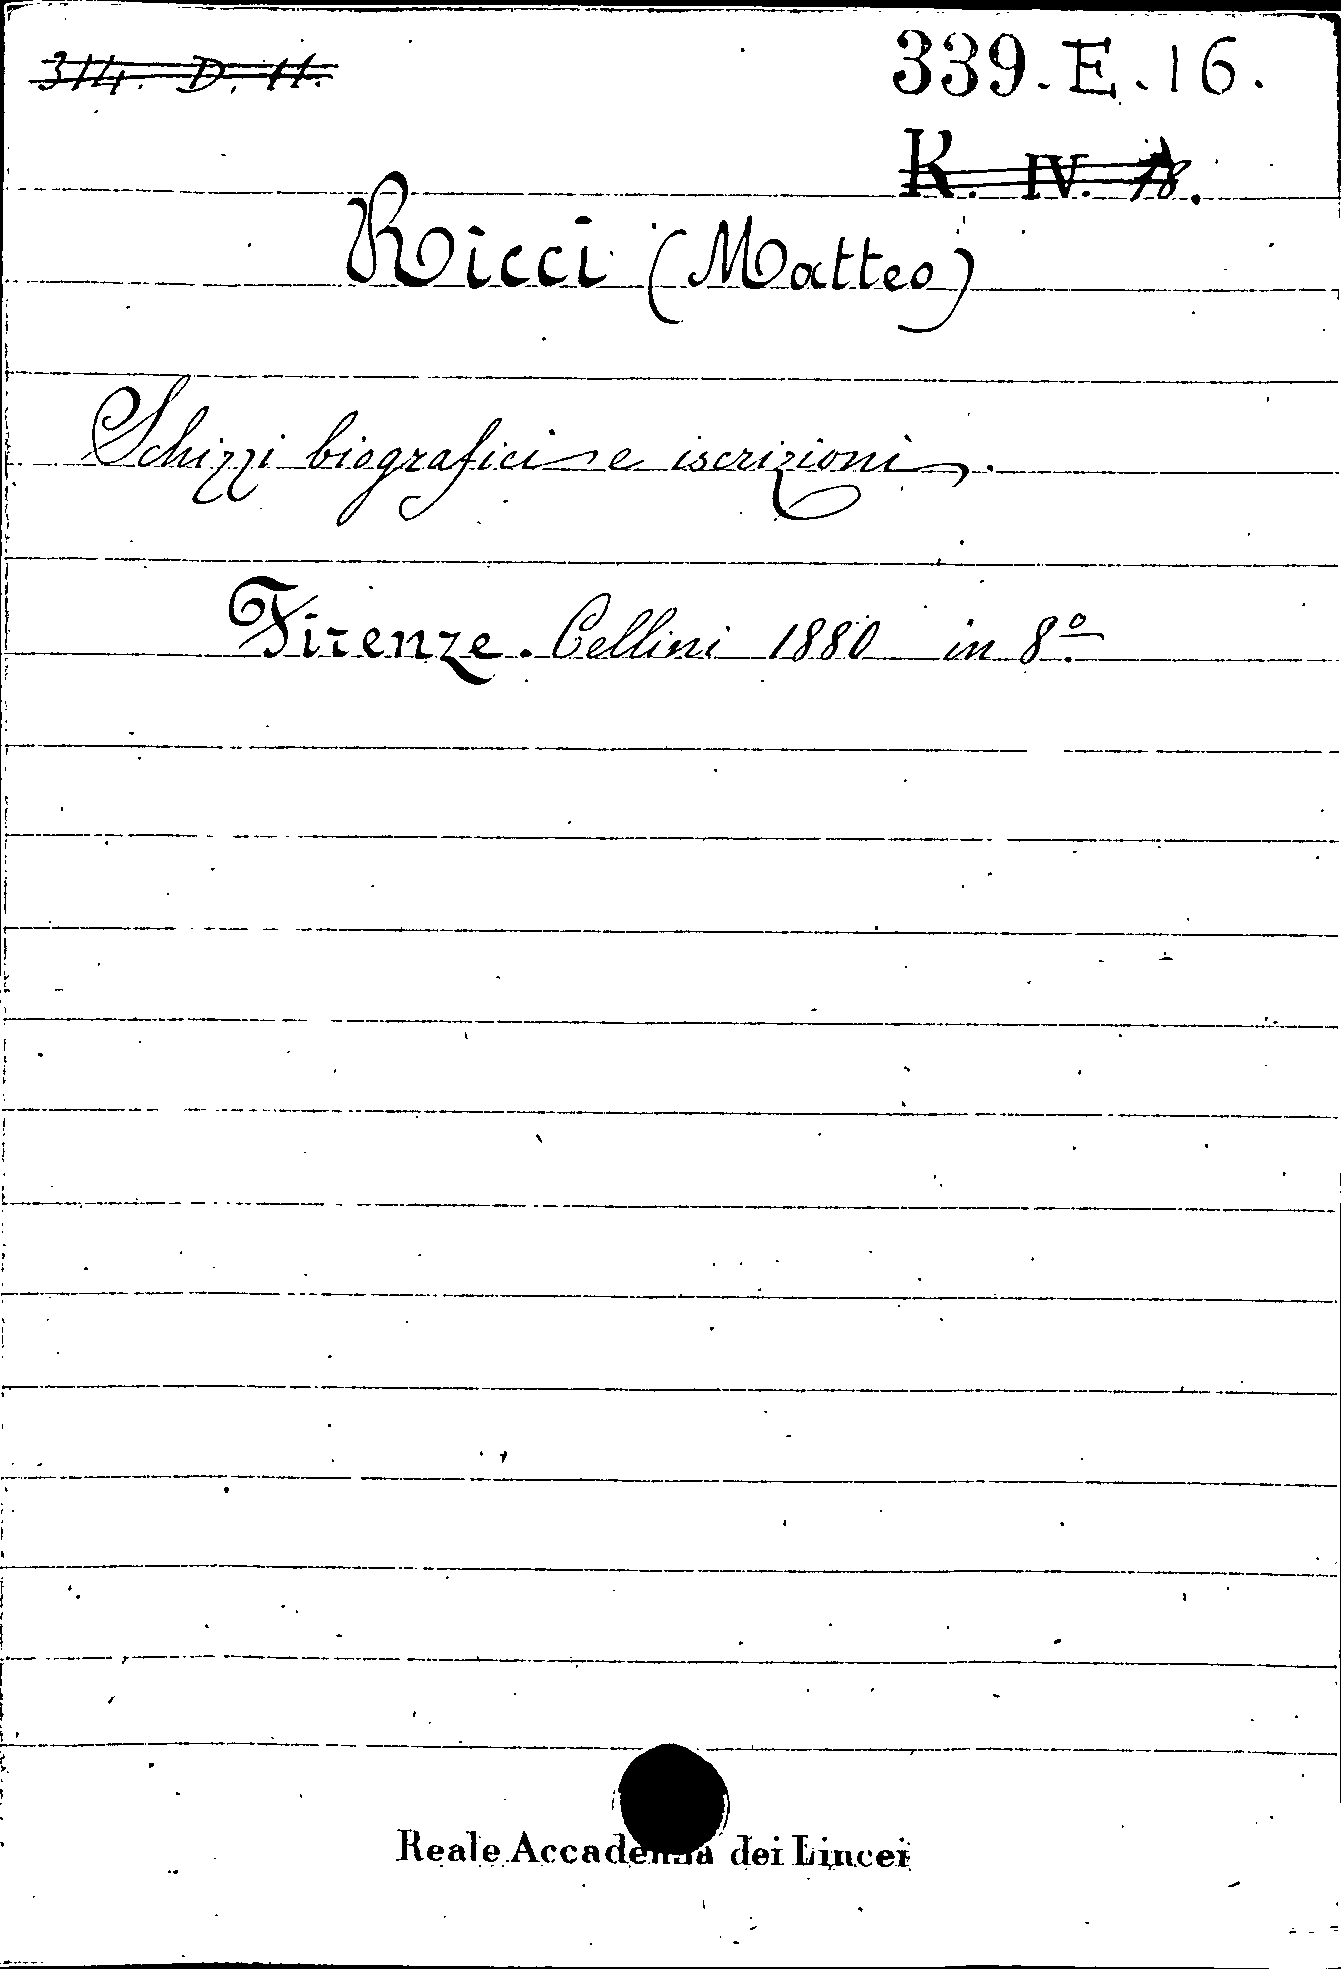 314. D. 11.
339. E. 16.
K. IV. 18.
Ricci (Matteo)
Schizzi biografici e iscrizioni.
Firenze. Cellini 1880 in 8.º
Reale Accademia dei Lincei